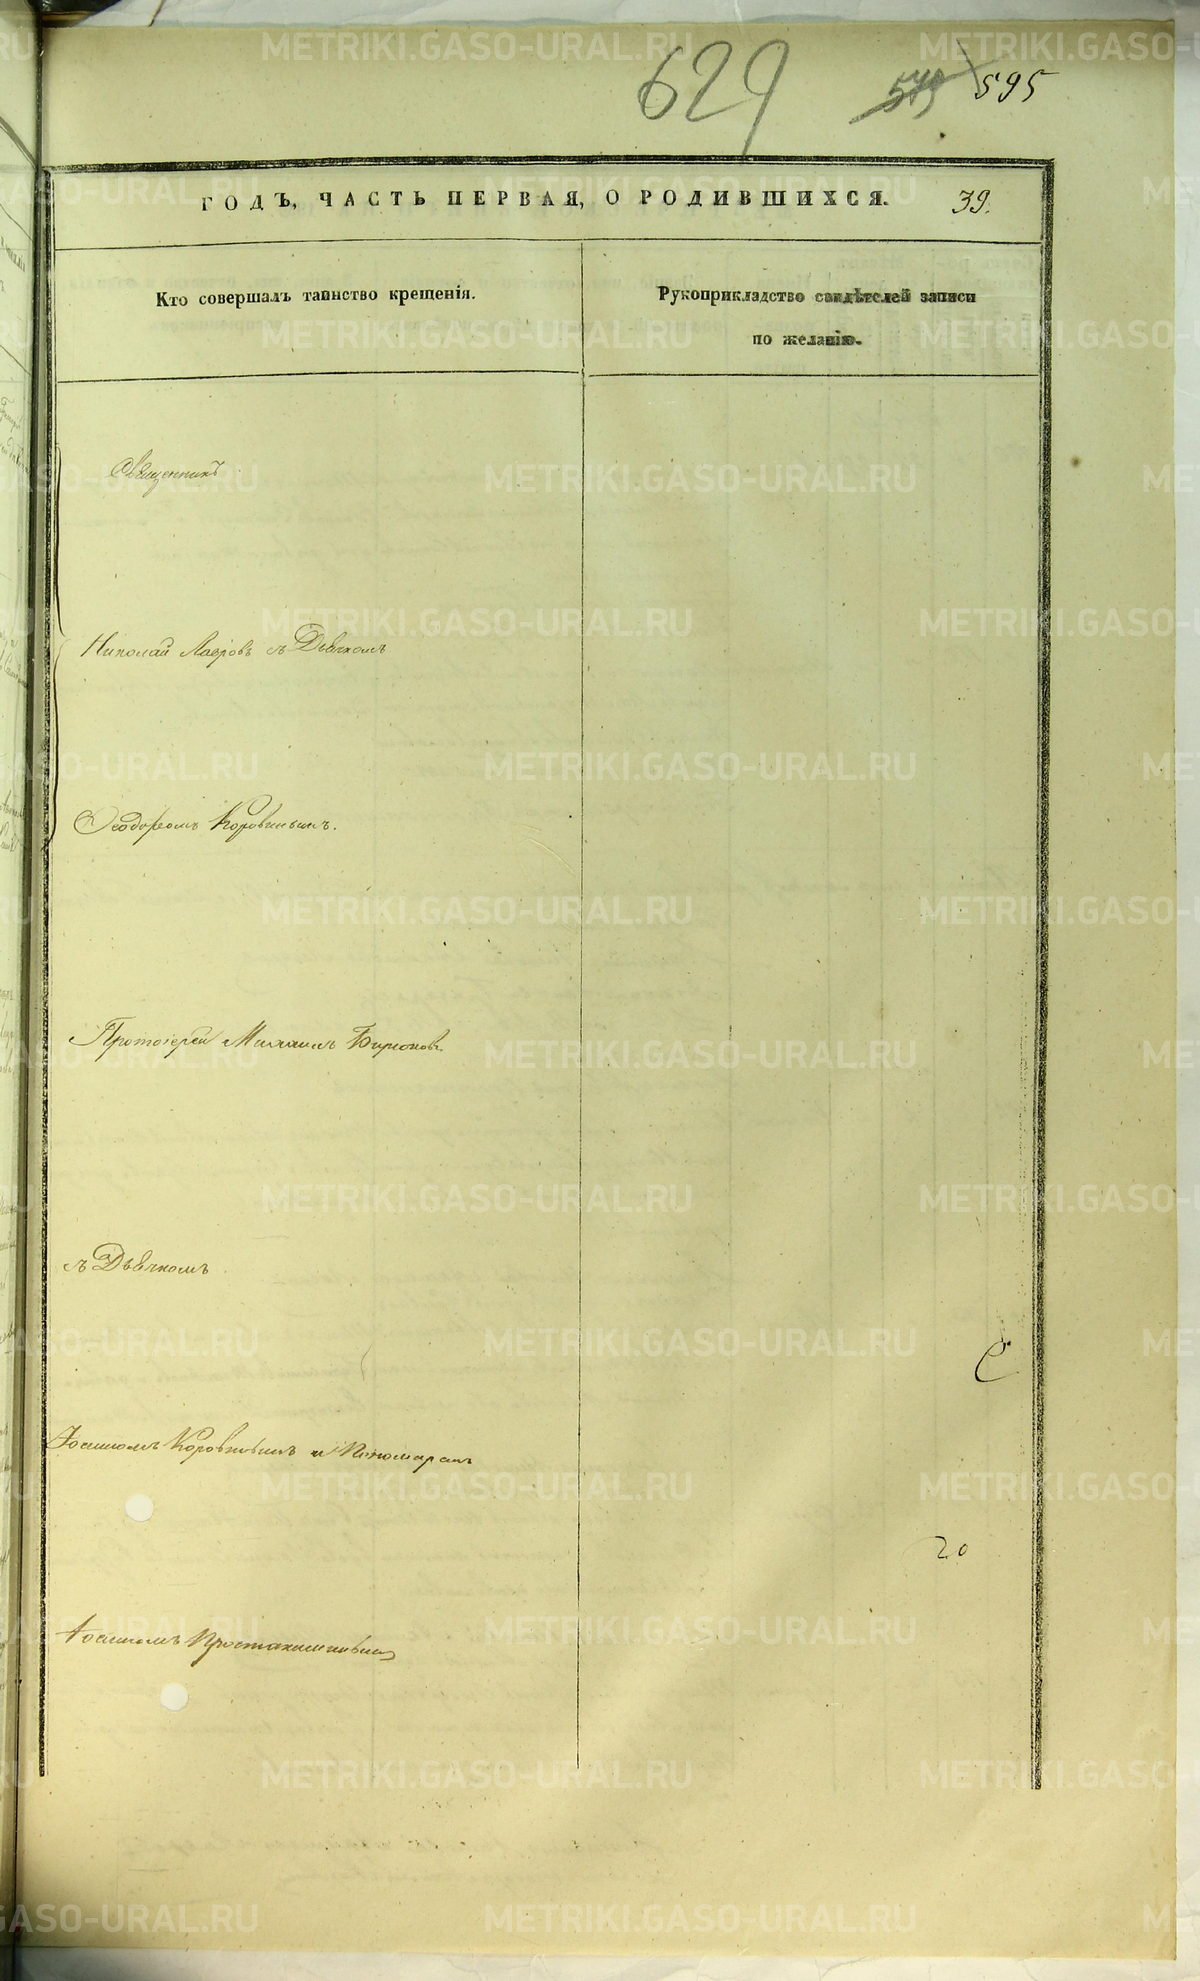 629
595
ГОДЪ, ЧАСТЬ ПЕРВАЯ, О РОДИВШИХСЯ. 39.
Кто совершалъ таинство крещенія.
Рукоприкладство свидѣтелей записи
по желанію.
Священникъ
Николай Лавровъ съ Дьячкомъ
Ѳеодоромъ Коровинымъ.
Протоіерей Михаилъ
съ Дьячкомъ
Коровинымъ и Пономаремъ
20
METRIKI.GASO-URAL.RU